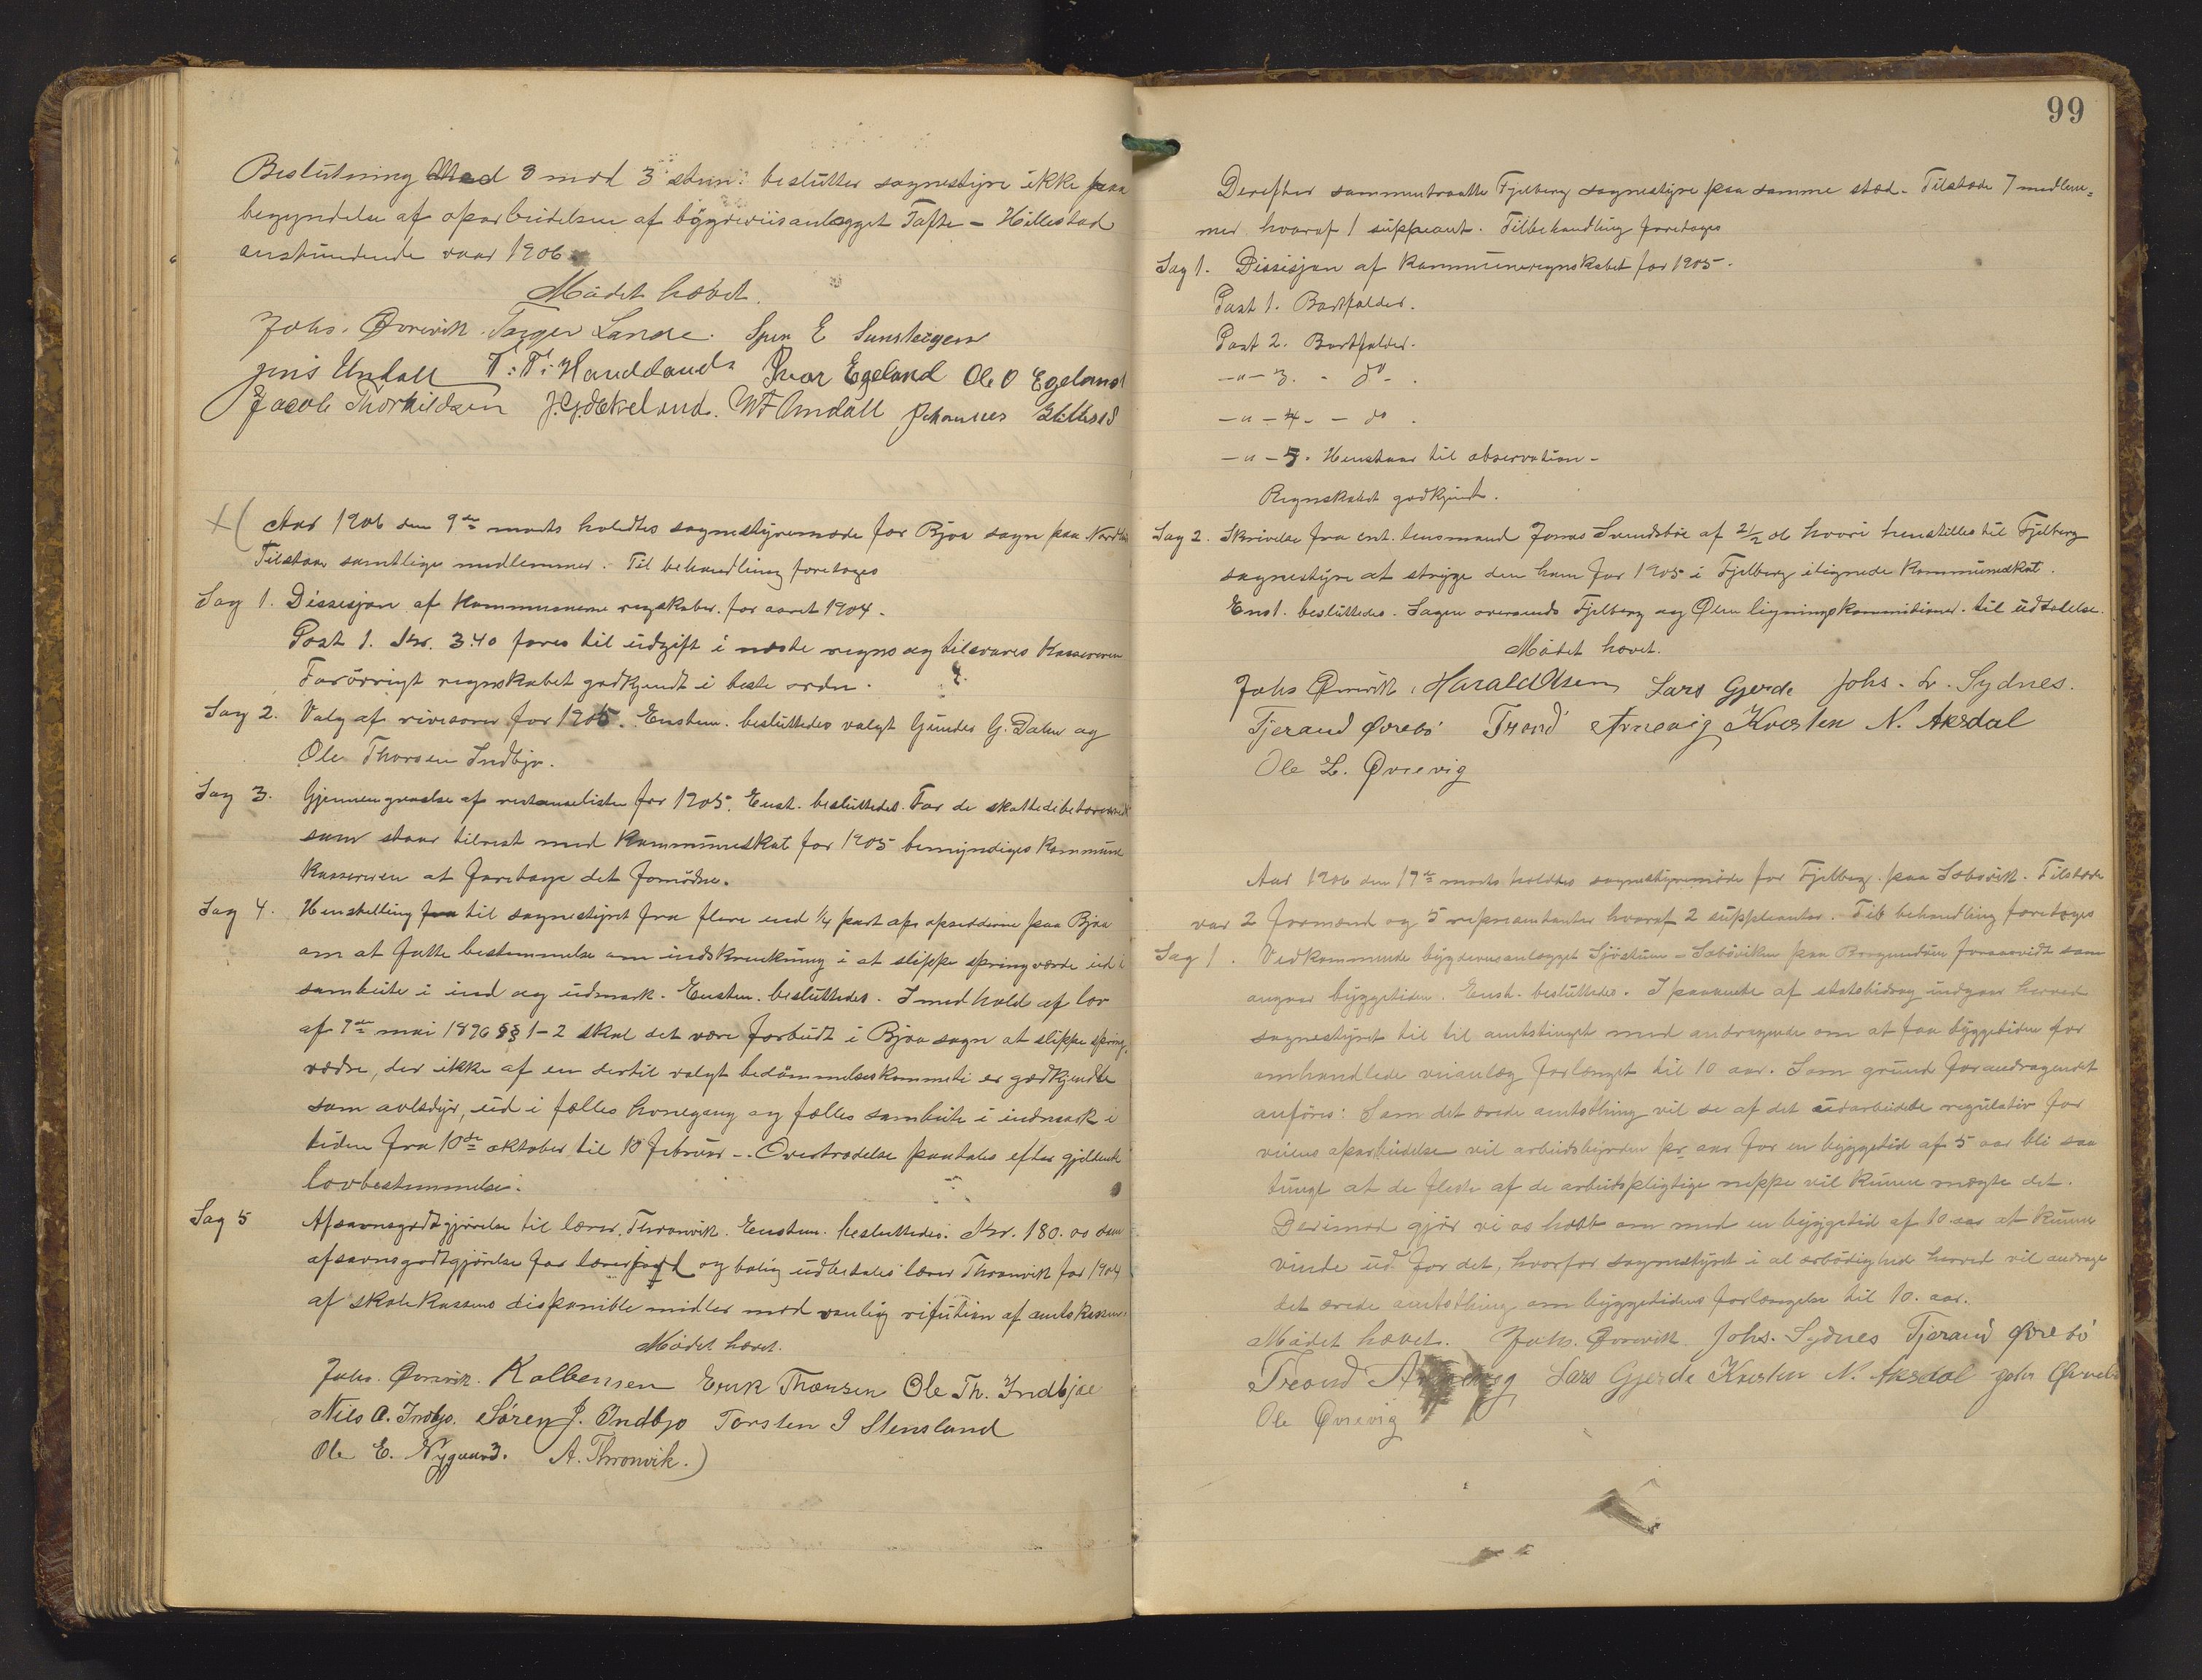 Beslutning Med 8 mod 3 stem. beslutter sognestyre ikke paa
begyndelse af oparbeidelsen af bygdeveisanlægget Tafte - Hillestad
anstundende vaar 1906
Mødet hævet.
Johs. Øvrevik. Torger Lande. E
Jens Undall T. T. Haucklands Ivar Egeland Ole O Egeland
Jacob Thorkildsen J. G. Økeland. Undall Johannes
Aar 1906 den 9de marts holdtes sognestyremøde for Bjoa sogn paa
Tilstær samtlige medlemmer. Til behandling foretoges
Sag 1. Dissisjon af Kommunerne regskaber. for aaret 1904.
Post 1. Kr. 3.40 føres til udgift i næste regns og tilsvares Kassereren
Forøvrigt regnskabet godkjendt i beste orden.
Sag 2. Valg af rivisorer for 1905. Enstem. besluttedes valgt Gunder G. Dalen og
Ole Thorsen Indbjo.
Sag 3. Gjennemgaaelse af restanselisten for 1905. Enst. besluttedes. For de
som staar tilrest med Kommuneskat for 1905 bemyndiges Kommune
Kassereren at foretage det fornødne.
Sag 4. Henstilling fra til sognestyret fra flere end 1/4 part af opsidderne paa Bjoa
om at fatte bestemmelse om indskrenkning i at slippe springvæde ud i
sambeite i ind og udmark. Enstem. besluttedes. I medhold af lov
af 9de mai 1896 §§ 1-2 skal det være forbudt i Bjoa sogn at slippe spring,
vædre, der ikke af en dertil valgt bedømmelseskommeti er godkjendte
som avlsdyr, ud i fælles havnegang og fælles sambeite i indmark i
tiden fra 10de oktober til 10 februar -. Overtrædelse paatales efter gjeldende
lovbestemmelse.
Sag 5 Afsavnsgodtgjørelse til lærer. Thronvik. Enstem. besluttedes. Kr. 180.00 som
afsavnsgodtgjørelse for lærerjord og bolig udbetales lærer Thronvik for 1904
af skolekassens disponible midler mod vanlig rifution af amtskassen.
Mødet hævet.
Johs. Øvrevik. Kolbensen Erik Thorsen Ole Th. Indbjoe
Nils O. Indbjo. Søren J. Indbjo Torsten I Stensland
Ole E. Nygaard. A. Thronvik.)
99
Derefter sammentraatte Fjelberg sognestyre paa samme sted. Tilstede 7 medlem=
mer hvoraf 1 supleant. Tilbehandling foretages
Sag 1. Dissisjon af Kommuneregnskabet for 1905.
Post 1. Bortfalder.
Post 2. Bortfalder.
-"- 3. - do -.
-"- 4. - do .
-"- 5. Henstaar til observation -
Regnskabet godkjent.
Sag 2. Skrivelse fra ent. lensmand Jonas Svendsbøe af 2/2 06 hvori henstilles til Fjelberg
sognestyre at stryge den ham for 1905 i Fjelberg ilignede Kommuneskat.
Enst. besluttedes. Sagen oversends Fjelberg og Ølen ligningskommisioner. til udtalelse.
Mødet hævet.
Johs Øvrevik, Harald Olsen Lars Gjerde Johs. L. Sydnes.
Tjerand Øvrebø Trond Arnevig Kvesten N. Aksdal
Ole L. Øvrevig
Aar 1906 den 17de marts holdtes sognestyremøde for Fjelberg. paa Sæbøvik. Tilstede
var 2 formænd og 5 repræsentanter hvoraf 2 suppleanter. Til behandling foretoges
Sag 1. Vedkommende bygdeveisanlægget Sjøstuen - Sæbøviken paa Borgundøen forsaavidt som
angaar byggetiden. Enst. besluttedes. I paavente af statsbidrag indgaar herved
sognestyret til til amtstinget med andragende om at faa byggetiden for
omhandlede veianlæg forlænget til 10 aar. Som grund for andragendet
anføres: Som det ærede amtsthing vil se af det udarbeidede regulativ for
veiens oparbeidelse vil arbeidsbyrden pr. aar for en byggetid af 5 aar bli saa
tungt at de fleste af de arbeidspligtige neppe vil kunne magte det.
Derimod gjør vi os haab om med en byggetid af 10 aar at kunne
vinde ud for det, hvorfor sognestyret i al ærbødighed herved vil andrage
det ærede amtsthing om byggetidens forlængelse til 10. aar.
Mødet hævet. Johs. Øvrevik Johs. Sydnes Tjerand Øvrebø
Treond Arnevig Lars Gjerde Kvesten N. Aksdal
Ole Øvrevig